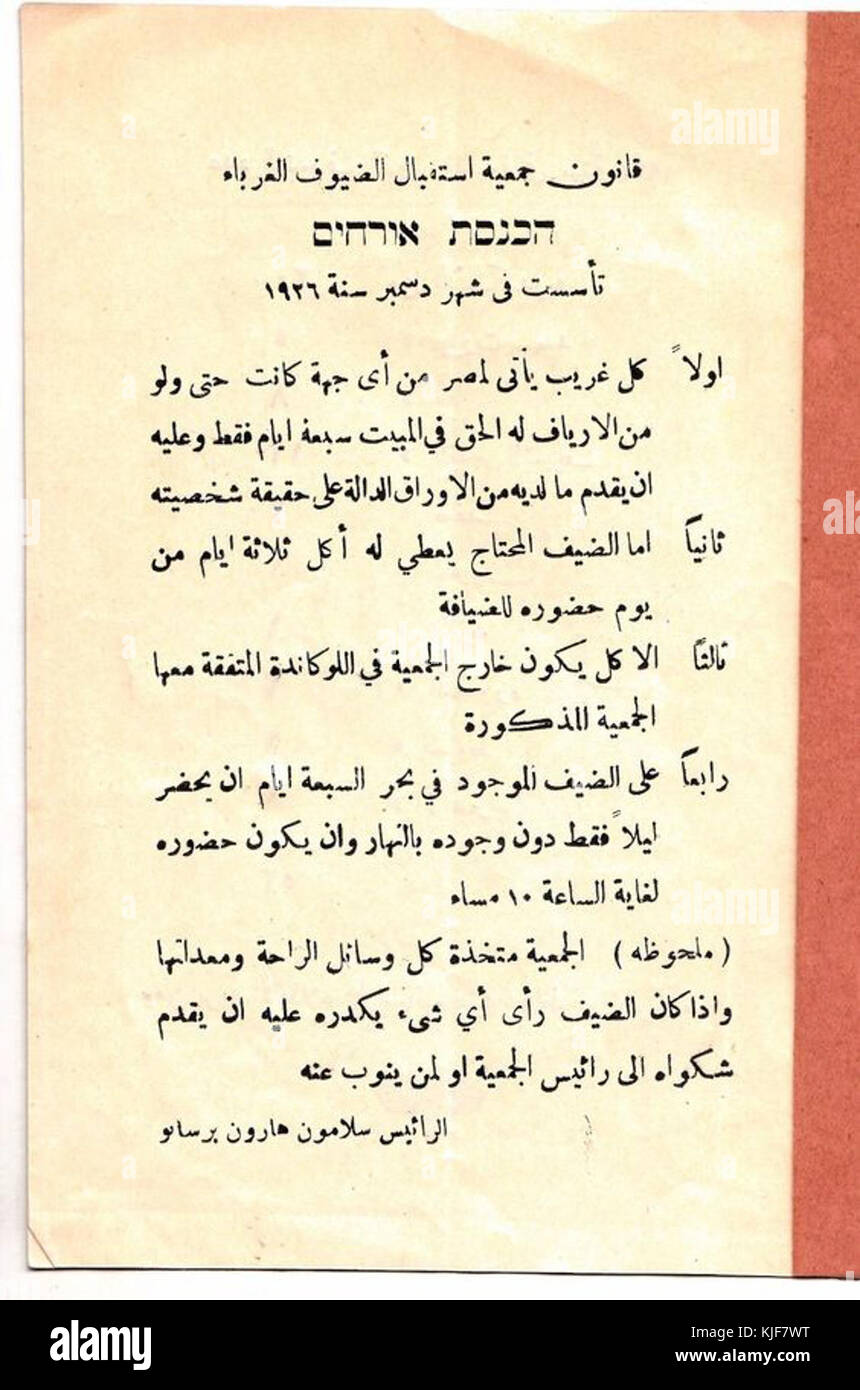 قانون جمعية استقبال الضيوف الغرباء
הכנסת אורחים
تأسست فى شهر دسمبر سنة ١٩٢٦
اولاً كل غريب يأتى لمصر من أى جهة كانت حتى ولو
من الارياف له الحق في المبيت سبعة ايام فقط وعليه
ان يقدم ما لديه من الاوراق الدالة على حقيقة شخصيته
ثانياً اما الضيف المحتاج يعطي له أكل ثلاثة ايام من
يوم حضوره للضيافة
ثالثاً الاكل يكون خارج الجمعية في اللوكاندة المتفقة معها
الجمعية المذكورة
رابعاً على الضيف الموجود في بحر السبعة ايام ان يحضر
ليلاً فقط دون وجوده بالنهار وان يكون حضوره
لغاية الساعة ١٠ مساء
( ملحوظه ) الجمعية متخذة كل وسائل الراحة ومعداتها
واذا كان الضيف رأى أي شىء يكدره عليه ان يقدم
شكواه الى رائيس الجمعية او لمن ينوب عنه
الرائيس سلامون هارون برسانو
alamy
Image ID: KJF7WT
www.alamy.com